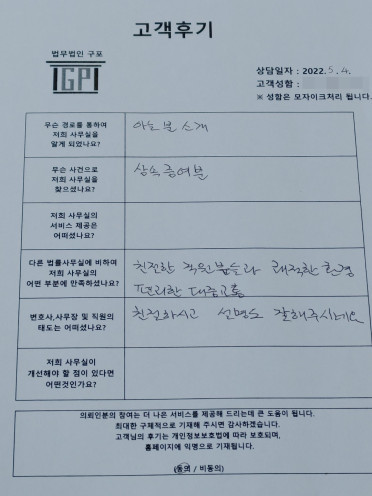 고객후기
법무법인 구포
GP
상담일자 : 2022. 5. 4.
고객성함 :
※ 성함은 모자이크처리 됩니다.
무슨 경로를 통하여
저희 사무실을
알게 되었나요?
아는 분 소개
무슨 사건으로
저희 사무실을
찾으셨나요?
상속 증여분
저희 사무실의
서비스 제공은
어떠셨나요?
다른 법률사무실에 비하여
저희 사무실의
어떤 부분에 만족하셨나요?
친절한 직원분들과 쾌적한 환경
편리한 대중교통
변호사,사무장 및 직원의
태도는 어떠셨나요?
친절하시고 설명도 잘해주시네요
저희 사무실이
개선해야 할 점이 있다면
어떤것인가요?
의뢰인분의 참여는 더 나은 서비스를 제공해 드리는데 큰 도움이 됩니다.
최대한 구체적으로 기재해 주시면 감사하겠습니다.
고객님의 후기는 개인정보보호법에 따라 보호되며,
홈페이지에 익명으로 기재됩니다.
(동의 / 비동의)